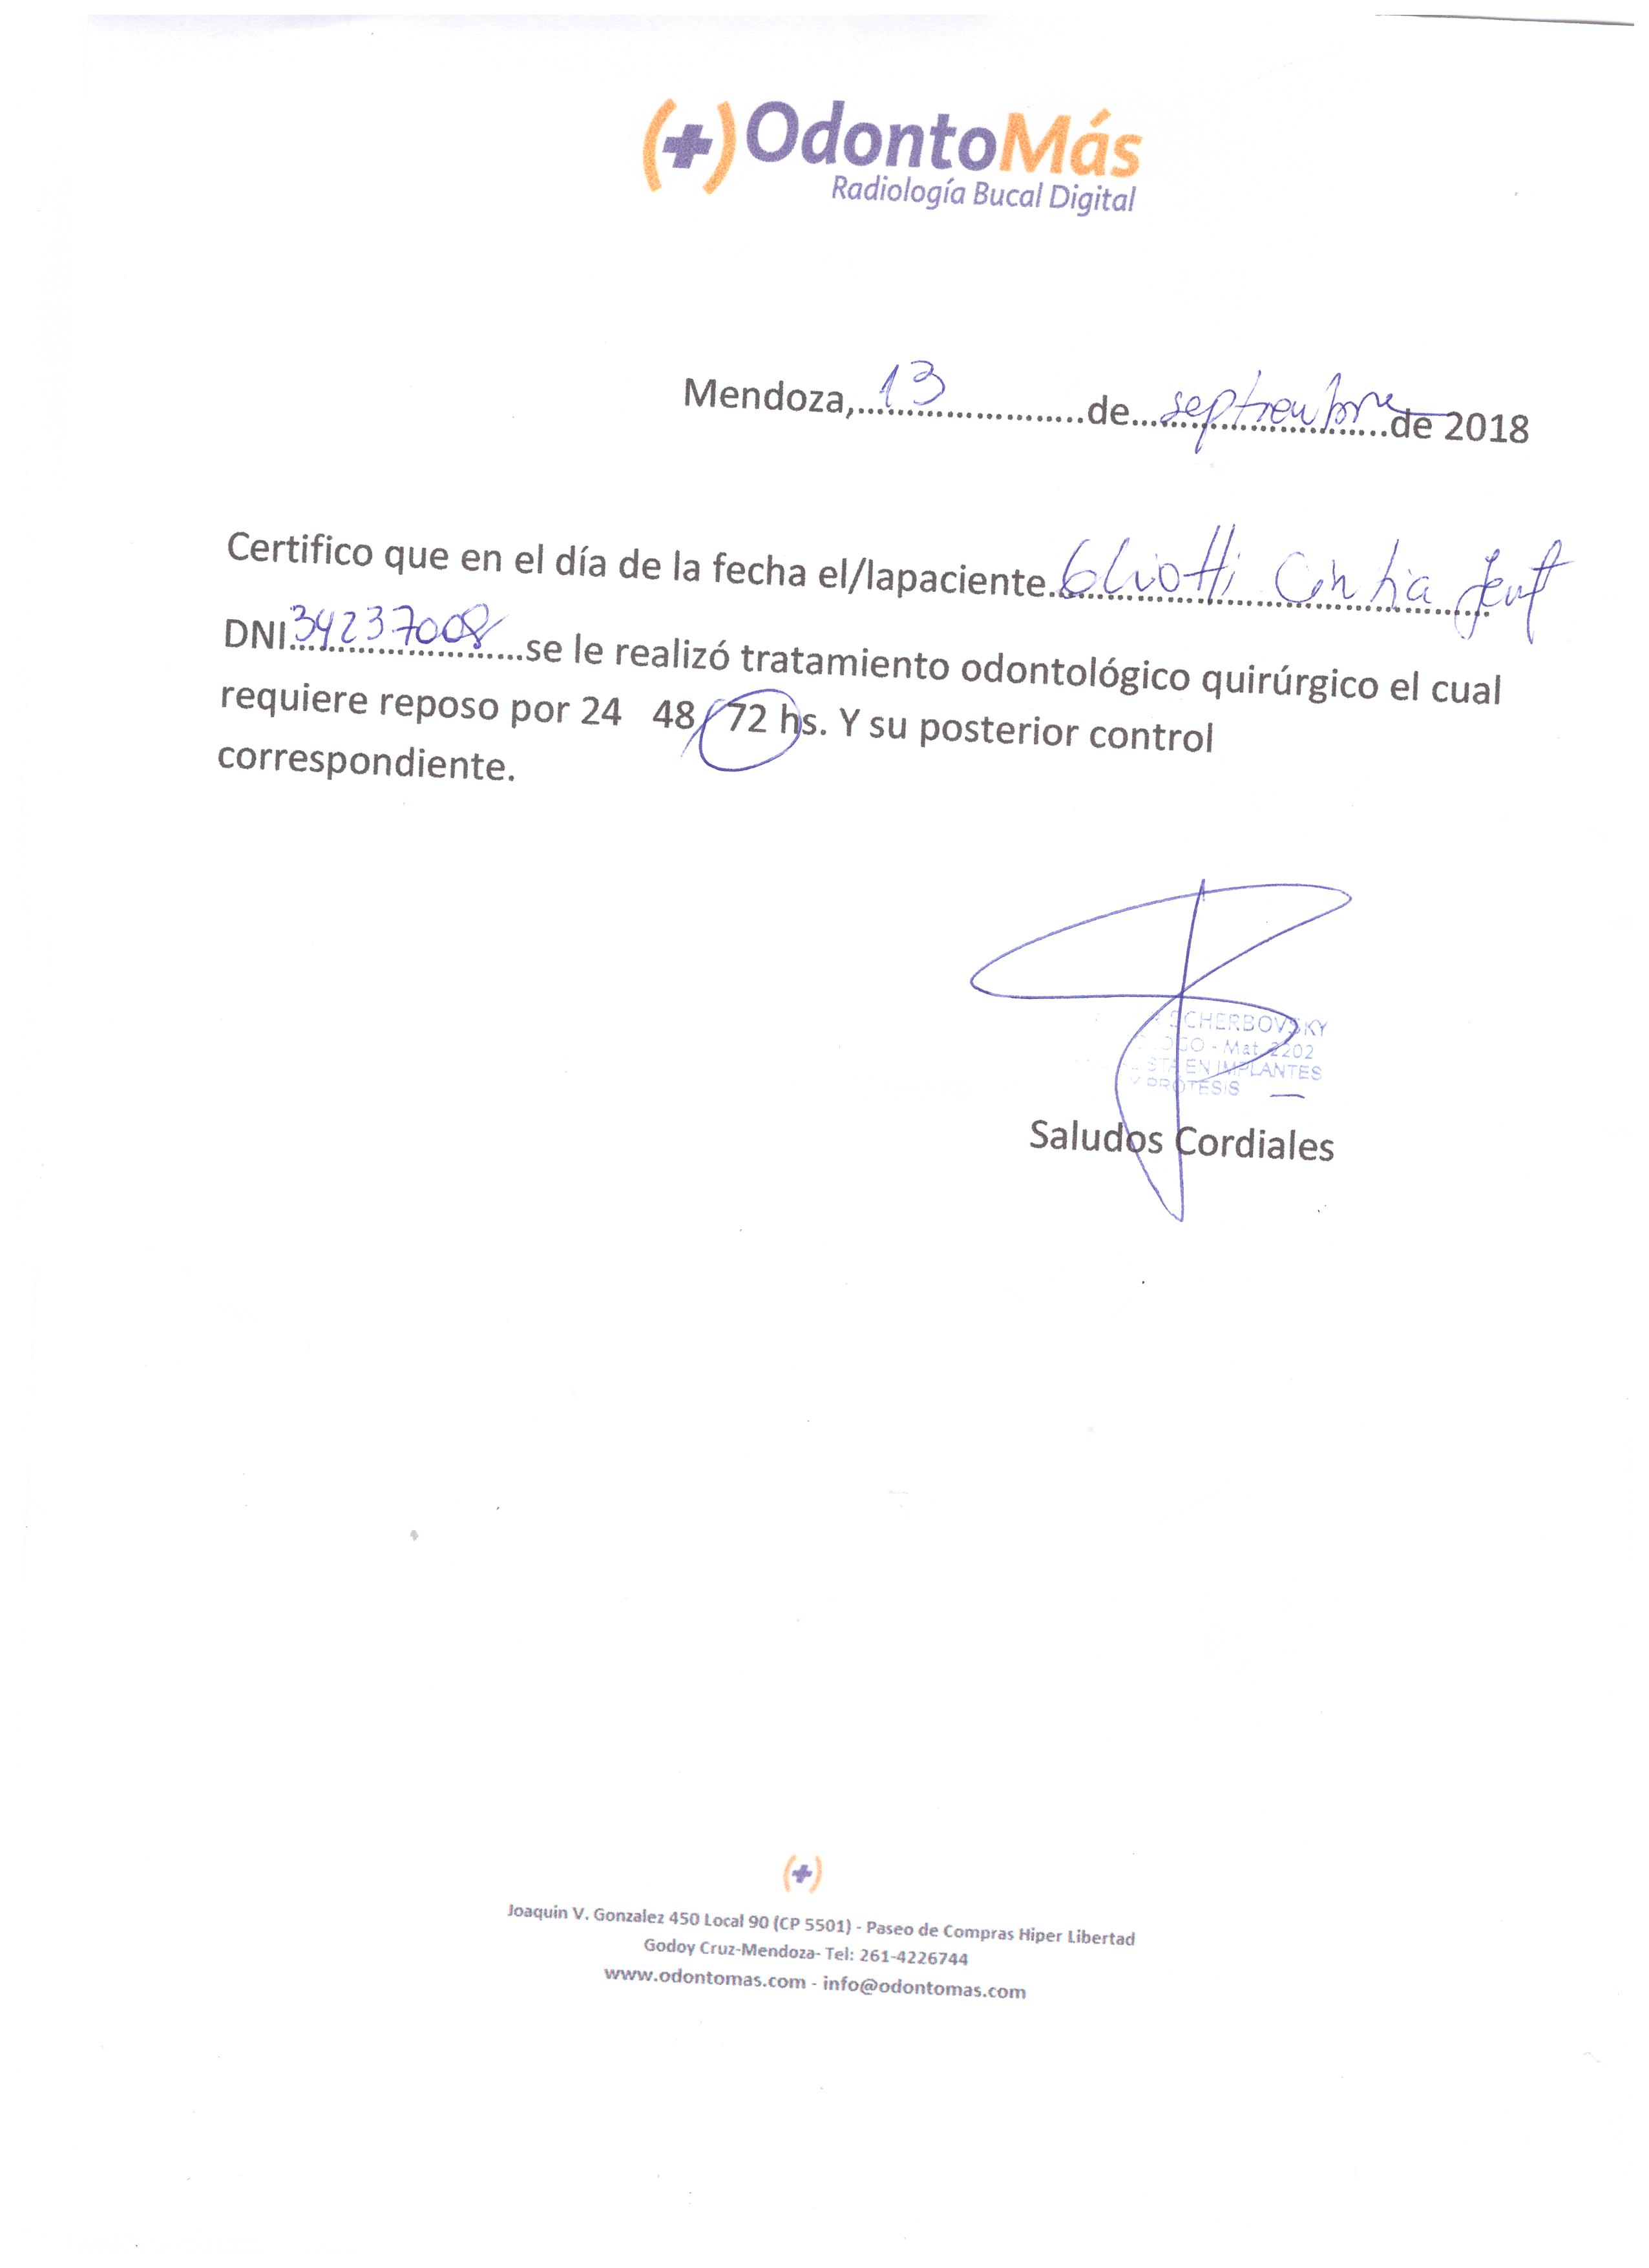 (+) OdontoMás
Radiología Bucal Digital
Mendoza,....13....................de....septiembre....de 2018
Certifico que en el día de la fecha el/lapaciente....Gliotti Cintia
DNI 34237008 ..........se le realizó tratamiento odontológico quirúrgico el cual
requiere reposo por 24 48 72 hs. Y su posterior control
correspondiente.
SCHERBOVSKY
- Mat. 2202
EN IMPLANTES
Y PROTESIS
Saludos Cordiales
(+)
Joaquin V. Gonzalez 450 Local 90 (CP 5501) - Paseo de Compras Hiper Libertad
Godoy Cruz-Mendoza- Tel: 261-4226744
www.odontomas.com - info@odontomas.com